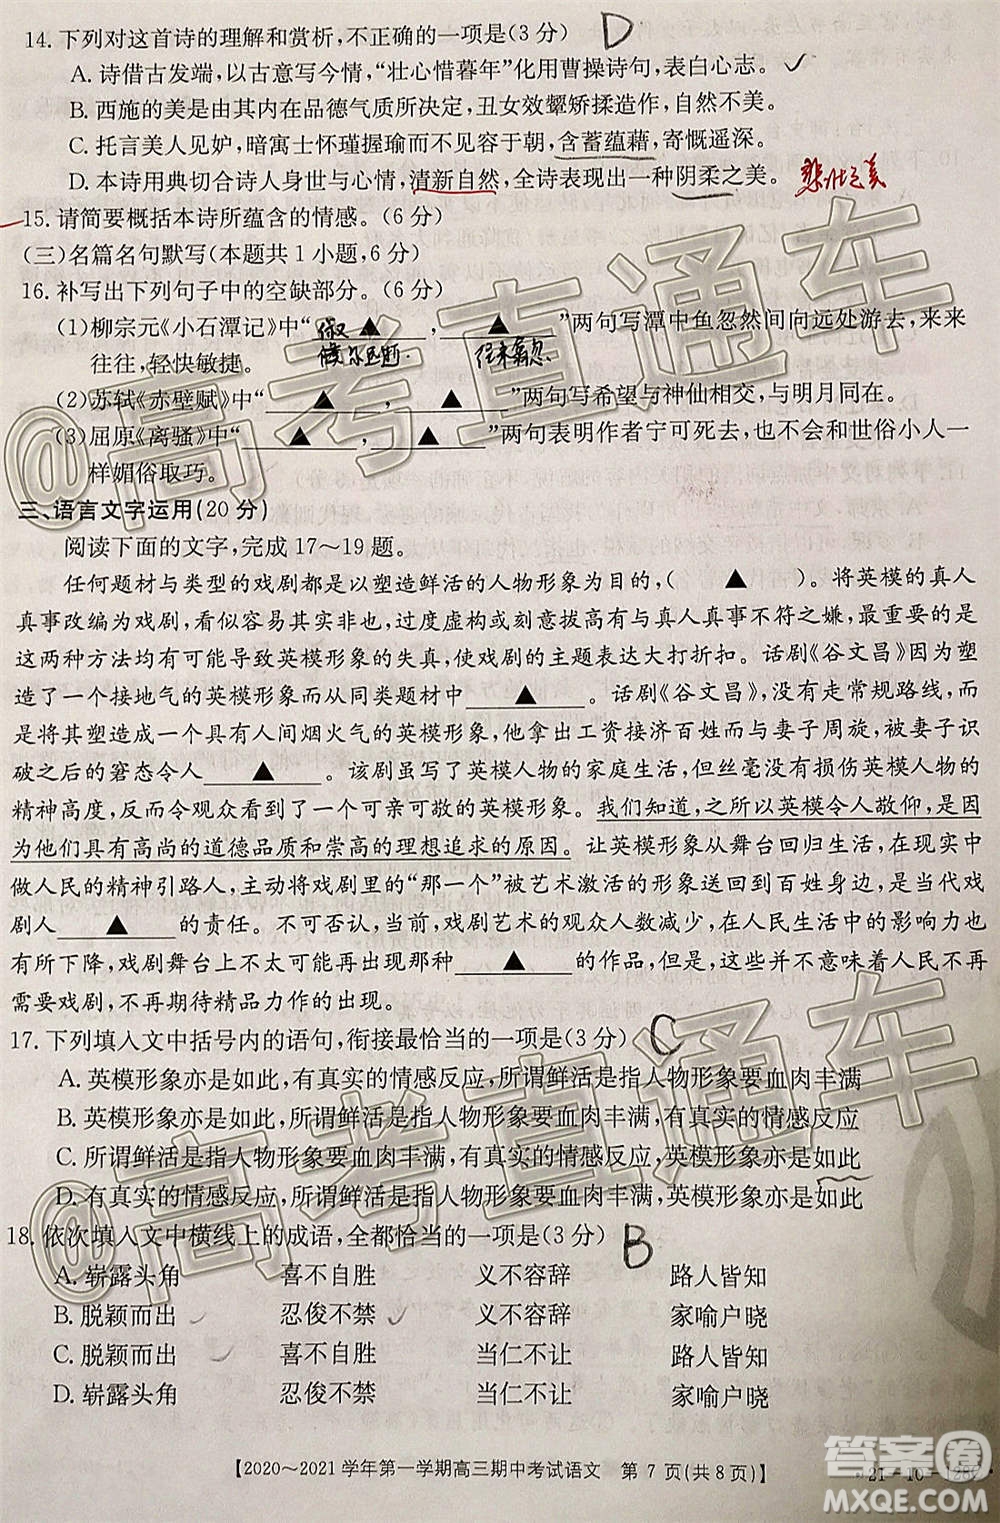 14. 下列对这首诗的理解和赏析,不正确的一项是(3分) D
A. 诗借古发端,以古意写今情,“壮心惜暮年”化用曹操诗句,表白心志。
B. 西施的美是由其内在品德气质所决定,丑女效颦矫揉造作,自然不美。
C. 托言美人见妒,暗寓士怀瑾握瑜而不见容于朝,含蓄蕴藉,寄慨遥深。
D. 本诗用典切合诗人身世与心情,清新自然,全诗表现出一种阴柔之美。 悲壮之美
15. 请简要概括本诗所蕴含的情感。(6分)
(三)名篇名句默写(本题共1小题,6分)
16. 补写出下列句子中的空缺部分。(6分)
(1)柳宗元《小石潭记》中“ 俶 ▲ , ▲ ”两句写潭中鱼忽然间向远处游去,来来
往往,轻快敏捷。 尔远逝 往来翕忽
(2)苏轼《赤壁赋》中“ ▲ , ▲ ”两句写希望与神仙相交,与明月同在。
(3)屈原《离骚》中“ ▲ , ▲ ”两句表明作者宁可死去,也不会和世俗小人一
样媚俗取巧。
三、语言文字运用(20分)
阅读下面的文字,完成17～19题。
任何题材与类型的戏剧都是以塑造鲜活的人物形象为目的,( ▲ )。将英模的真人
真事改编为戏剧,看似容易,其实非也,过度虚构或刻意拔高有与真人真事不符之嫌,
这两种方法均有可能导致英模形象的失真,使戏剧的主题表达大打折扣。话剧《谷文昌》因为塑
造了一个接地气的英模形象而从同类题材中 ▲ 。话剧《谷文昌》,没有走常规路线,而是
将其塑造成一个具有人间烟火气的英模形象,他拿出工资贴补大家与妻子周旋,被妻子识
破之后的窘态令人 ▲ 。该剧虽写了英模人物的家庭生活,但丝毫没有损伤英模人物的
精神高度,反而令观众看到了一个可亲可敬的英模形象。我们知道,之所以英模令人敬仰,是因
为他们具有高尚的道德品质和崇高的理想追求的原因。让英模形象从舞台回归生活,
做人民的精神引路人,主动将戏剧里的“那一个”被艺术激活的形象送回到百姓身边,是当代戏
剧人 ▲ 的责任。不可否认,当前,戏剧艺术的观众人数减少,在人民生活中的影响力也
有所下降,戏剧舞台上不太可能再出现那种 ▲ 的作品,但是,这些并不意味着人民不再
需要戏剧,不再期待精品力作的出现。
17. 下列填入文中括号内的语句,衔接最恰当的一项是(3分) C
A. 英模形象亦是如此,有真实的情感反应,所谓鲜活是指人物形象要血肉丰满
B. 英模形象亦是如此,所谓鲜活是指人物形象要血肉丰满,有真实的情感反应
C. 所谓鲜活是指人物形象要血肉丰满,有真实的情感反应,英模形象亦是如此
D. 有真实的情感反应,所谓鲜活是指人物形象要血肉丰满,英模形象亦是如此
18. 依次填入文中横线上的成语,全都恰当的一项是(3分) B
A. 崭露头角 喜不自胜 义不容辞 路人皆知
B. 脱颖而出 忍俊不禁 义不容辞 家喻户晓
C. 脱颖而出 喜不自胜 当仁不让 路人皆知
D. 崭露头角 忍俊不禁 当仁不让 家喻户晓
【2020～2021学年第一学期高三期中考试语文 第7页(共8页)】
@高考直通车
@高考直通车
答案圈
MXQE.COM